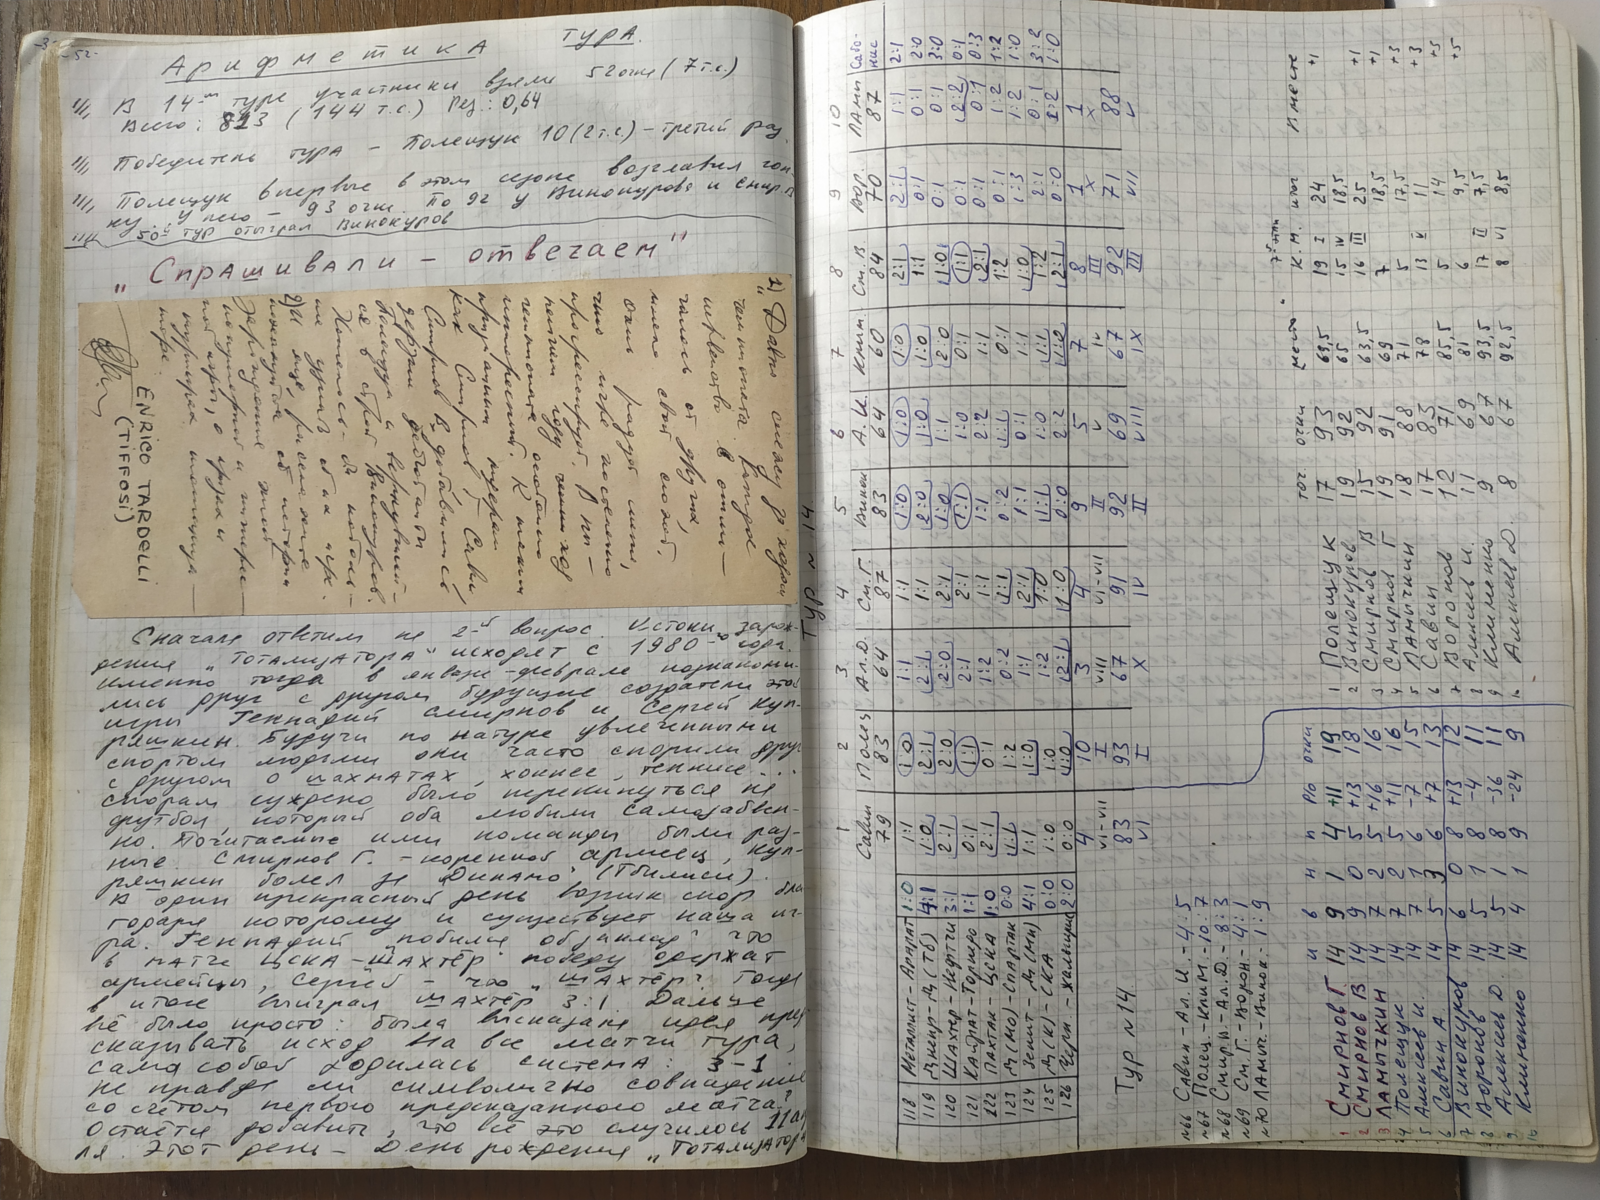 -52-
Арифметика тура.
В 14-м туре участники взяли 52 очка (7 т.с.)
Всего: 823 (144 т.с.) Рез.: 0,64
Победитель тура - Полещук 10 (2 т.с.) - третий раз.
Полещук впервые в этом сезоне возглавил гон-
ку. У него - 93 очка. По 92 у Винокурова и Смир. В
50й тур отыграл Винокуров
„Спрашивали - отвечаем"
1) „Давно слежу за ходом
чемпионата. Борьба
чем-то отли-
чалась от других,
имела свой сюжет.
Очень радует меня,
что игра постепенно
прогрессирует. В ны-
нешнем году чемпионат
особенно
интересный. К таким
признанным лидерам
как Смирнов Г, Савин,
Смирнов В добавились
дерзкий дебютант
Полещук и вернувший-
ся в строй Винокуров.
ENRICO TARDELLI
(TIFFOSI)
Сначала ответим на 2-й вопрос. Истоки зарож-
дения „Тотализатора" исходят с 1980-го года.
Именно тогда в январе-феврале познакоми-
лись друг с другом будущие создатели этой
игры Геннадий Смирнов и Сергей Куп-
ряшкин. Будучи по натуре увлеченными
спортом людьми они часто спорили друг
с другом о шахматах, хоккее, теннисе...
Спорам суждено было перекинуться на
футбол который оба любили самозабвен-
но. Почитаемые ими команды были раз-
ные. Смирнов Г. - коренной армеец, Куп-
ряшкин болел за „Динамо" (Тбилиси).
В один прекрасный день возник спор бла-
годаря которому и существует наша иг-
ра. Геннадий побился об заклад что
в матче ЦСКА - Шахтёр победу одержат
армейцы, Сергей - что „Шахтёр". Тогда
в итоге выиграл Шахтёр 3:1. Дальше
всё было просто: была высказана идея пред-
сказывать исход на все матчи тура,
сама собой родилась система: 3-1
Не правда ли символично совпадение
со счётом первого предсказанного матча?
Остаётся добавить, что всё это случилось 11 ап
ля. Этот день - День рождения „Тотализатора
Тур N 14
1 2 3 4 5 6 7 8 9 10
Савин Полещ Ал.Д. См.Г. Винок А.И. Клим. См.В Вор. Лами Сабо-нис
79 83 64 87 83 64 60 84 70 87
118 Металлист - Арарат 1:0 1:1 1:0 1:1 1:1 1:0 1:0 1:0 2:1 2:1 1:1 2:1
119 Днепр - Д (Тб) 4:1 1:0 2:1 2:1 1:1 2:0 1:0 1:0 1:1 0:1 0:1 2:0
120 Шахтер - Нефтчи 3:1 2:1 2:0 2:0 2:1 1:0 1:1 2:0 1:0 0:1 0:1 3:0
121 Кайрат - Торпедо 1:1 0:1 1:1 2:1 2:1 1:1 1:0 0:1 1:1 0:1 2:2 0:1
122 Пахтак - ЦСКА 1:0 2:1 0:1 1:2 1:1 1:1 2:2 1:1 2:1 0:1 0:1 0:3
123 Д (Мо) - Спартак 0:0 1:1 1:2 0:2 1:1 0:2 1:1 0:1 1:2 0:1 1:2 1:2
124 Зенит - Д (Мн) 4:1 1:1 1:0 1:1 2:1 1:1 0:1 1:1 1:0 1:3 1:2 1:0
125 Д (К) - СКА 0:0 1:0 1:0 1:2 1:0 1:1 1:0 1:1 1:2 2:1 0:1 3:2
126 Черн. - Жальгирис 2:0 0:0 1:0 2:1 1:0 0:0 2:2 1:0 2:1 0:0 2:2 1:0
4 10 3 4 9 5 7 8 1 1
VI-VII I VIII VI-VII II V IV III X X
83 93 67 91 92 69 67 92 71 88
VI I X IV II VIII IX III VII V
Тур N 14
N66 Савин - Ал. И. - 4:5
N67 Полещ - Клим. - 10:7
N68 Смирн - Ал.Д. - 8:3
N69 См.Г. - Ворон - 4:1
N70 Ламыч. - Винок. - 1:9
и в н п р/о очки
1 Смирнов Г 14 9 1 4 +11 19
2 Смирнов В 14 9 0 5 +13 18
3 Ламычкин 14 7 2 5 +16 16
4 Полещук 14 7 2 5 +11 16
5 Алексеев И. 14 7 1 6 -7 15
6 Савин А 14 5 3 6 +7 13
7 Винокуров 14 6 0 8 +13 12
8 Воронов 14 5 1 8 -4 11
9 Алексеев Д 14 5 1 8 -36 11
10 Клименко 14 4 1 9 -24 9
7й этап
тот. очки „место" К.М. итог Вместе
1 Полещук 17 93 69,5 19 I 24 +1
2 Винокуров 19 92 65 15 IV 18,5
3 Смирнов В 15 92 63,5 16 III 25 +1
4 Смирнов Г 19 91 69 7 18,5 +1
5 Ламычкин 18 88 71 5 17,5 +3
6 Савин 17 83 78 13 V 11 +3
7 Воронов 12 71 85,5 5 14 +5
8 Алексеев И. 11 69 81 6 9,5 +5
9 Клименко 9 67 93,5 17 II 7,5
10 Алексеев Д. 8 67 92,5 8 VI 8,5